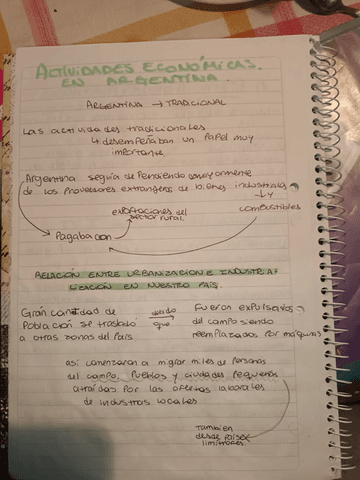 ACTIVIDADES ECONÓMICAS
EN ARGENTINA.
ARGENTINA → TRADICIONAL
Las actividades tradicionales
↳ desempeñaban un papel muy
importante
Argentina seguía dependiendo mayormente
de los proveesores extrangeros de bienes industriales
y
combustibles
exportaciones del
sector rural.
Pagaba con
RELACIÓN ENTRE URBANIZACION E INDUSTRIA-
LIZACIÓN EN NUESTRO PAÍS.
Gran cantidad de
Población se traslado
a otras zonas del país
debido
que
Fueron expulsavos
del campo siendo
reemplazados por máquinas
asi comenzaron a migrar miles de personas
del campo, pueblos y ciudades pequeñas
atraídas por las ofertas laborales
de industrias locales
También
desde países
limítrofes.